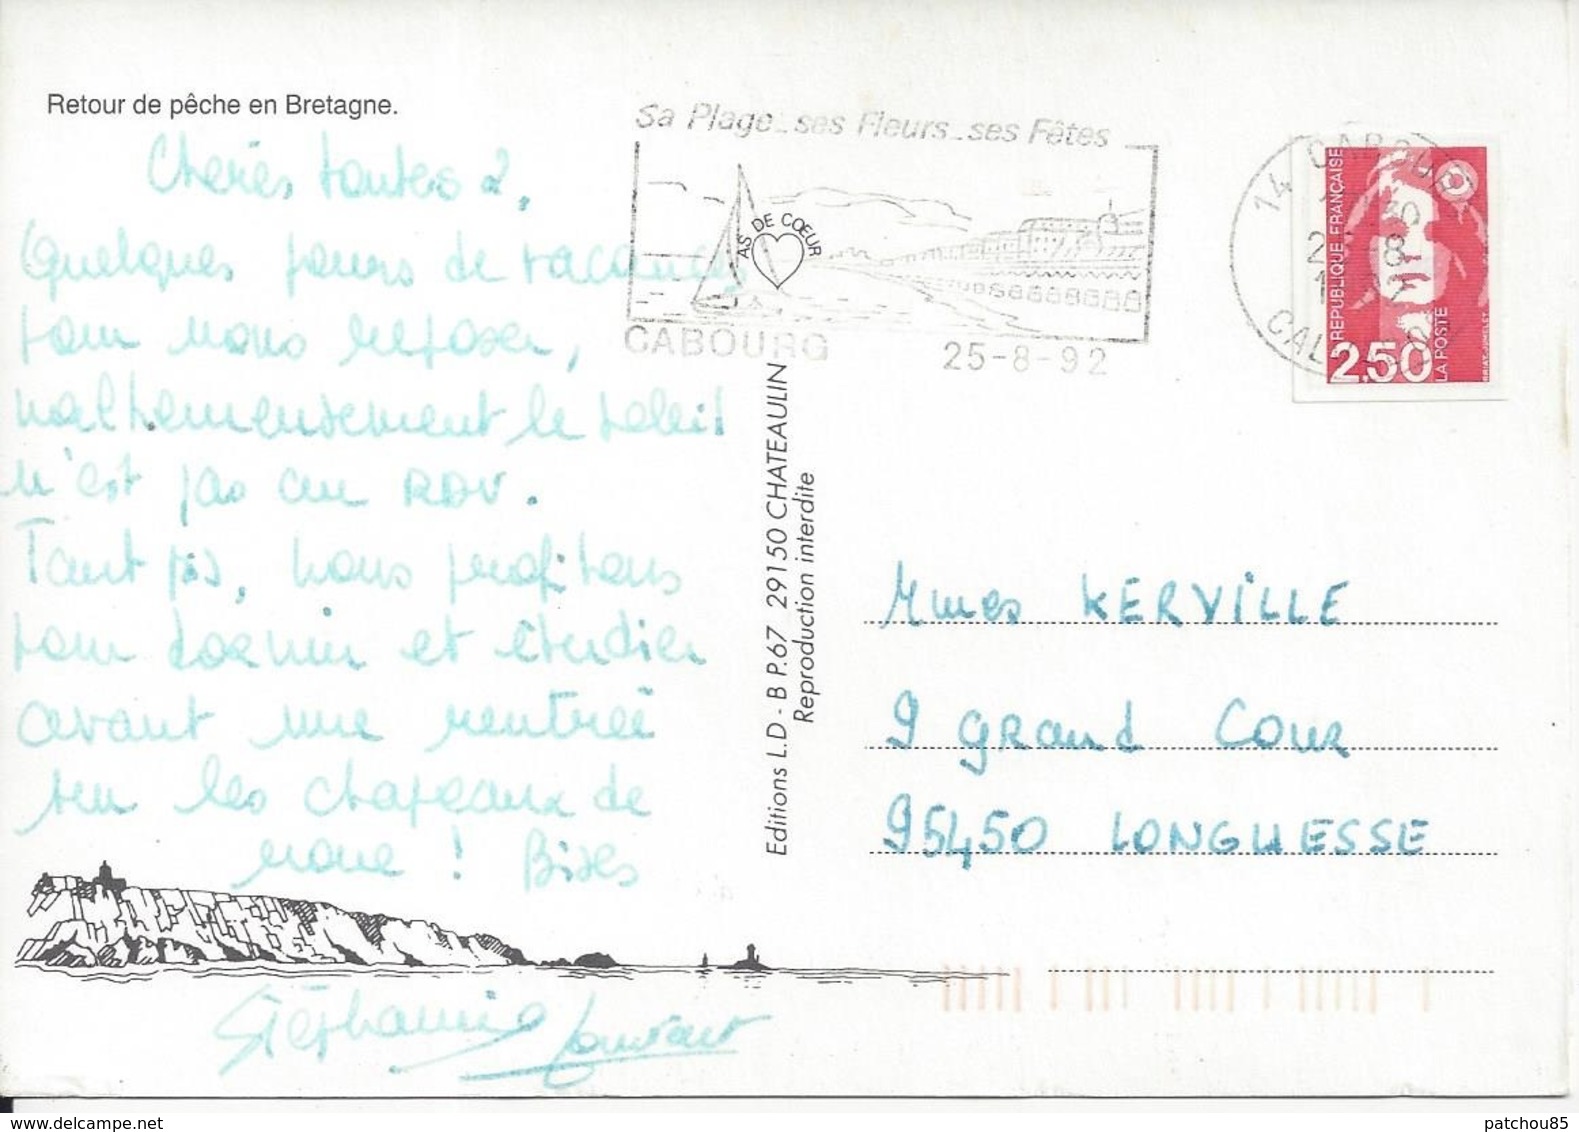 Retour de pêche en Bretagne.
Chères toutes 2.
Quelques jours de vacances
pour nous reposer,
malheureusement le soleil
n'est pas au RDV.
Tant pis, nous profitons
pour dormir et étudier
avant une rentrée
sur les chapeaux de
roue ! Bises
Stéphanie Laurent
Sa Plage_ses Fleurs_ses Fêtes
AS DE CŒUR
CABOURG 25-8-92
14 CABOURG
CALVADOS
REPUBLIQUE FRANÇAISE
2,50
LA POSTE
BRIAT-JUMELET
Editions L.D - B P.67 29150 CHATEAULIN
Reproduction interdite
Mmes KERVILLE
9 Grand Cour
95450 LONGUESSE
patchou85